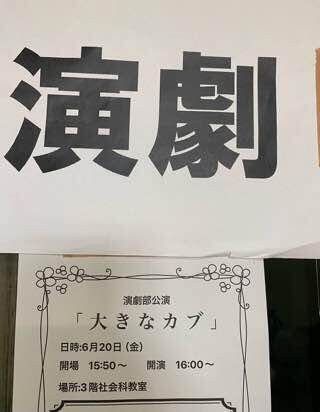 演劇
演劇部公演
「大きなカブ」
日時:6月20日(金)
開場 15:50〜 開演 16:00〜
場所:3階社会科教室